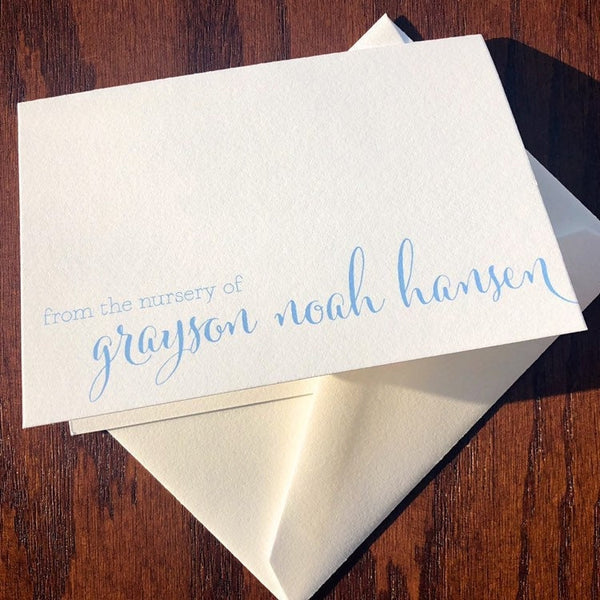 from the nursery of
grayson noah hansen